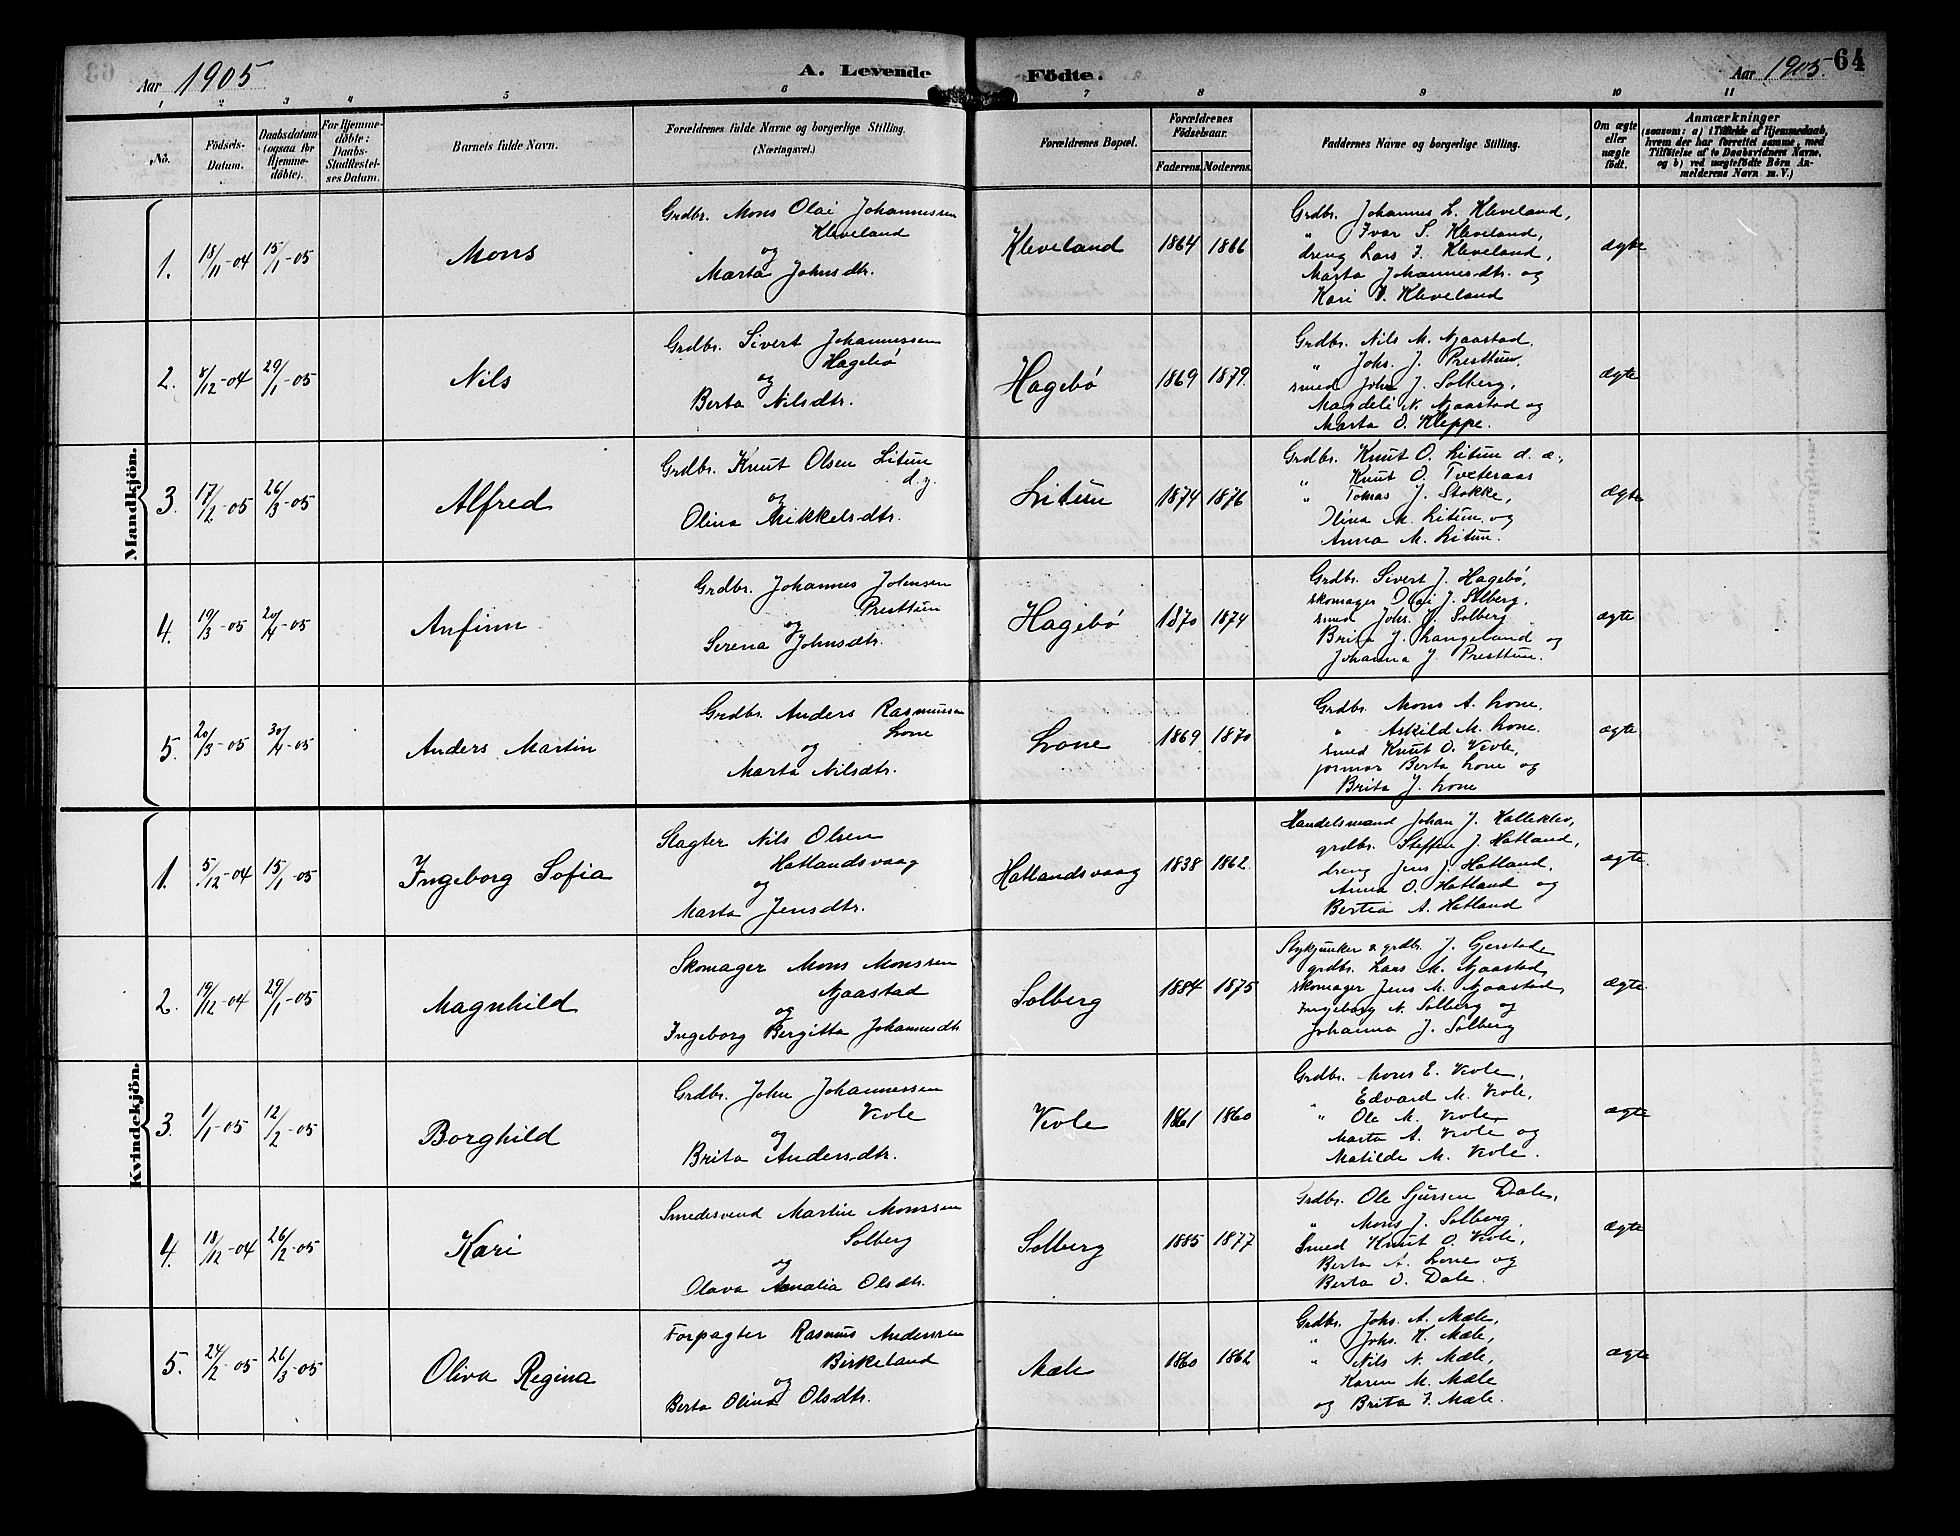 Aar 1905
A. Levende Födte.
Aar 1905. 64
1 2 3 4 5 6 7 8 9 10 11
No.
Födsels-
Datum.
Daabsdatum
(ogsaa for
Hjemme-
döbte).
For Hjemme-
döbte:
Daabs-
Stadfæstel-
ses Datum.
Barnets fulde Navn.
Forældrenes fulde Navne og borgerlige Stilling.
(Næringsvei.)
Forældrenes Bopæl.
Forældrenes
Födselsaar.
Faderens. Moderens.
Faddernes Navne og borgerlige Stilling.
Om ægte
eller
uægte
födt.
Anmærkninger
(saasom: a) i Tilfælde af Hjemmedaab,
hvem der har forrettet samme, med
Tilföielse af to Daabsvidners Navne,
og b) ved uægtefödte Börn An-
melderens Navn m. V.)
Mandkjön.
1. 18/11-04 15/1-05 Mons
Grdbr. Mons Olai Johannessen
Kleveland
og
Marta Johnsdtr.
Kleveland 1864 1866
Grdbr. Johannes L. Kleveland,
" Ivar S. Kleveland,
dreng Lars J. Kleveland,
Marta Johannesdtr. og
Kari O. Kleveland
ægte
2. 8/12-04 29/1-05 Nils
Grdbr. Sivert Johannessen
Hagebø
og
Berta Nilsdtr.
Hagebø 1869 1879.
Grdbr. Nils M. Njaastad.
" Johs. J. Presttun,
smed John J. Solberg,
Mandeli N. Njaastad og
Marta O. Kleppe.
ægte
3. 17/2-05 26/3-05 Alfred
Grdbr. Knut Olsen Litun
d.y.
og
Olina Mikkelsdtr.
Litun 1874 1876
Grdbr. Knut O. Litun d. æ.,
" Knut O. Tveteraas
" Tomas J. Stokke,
Olina M. Litun og
Anna M. Litun.
ægte
4. 19/3-05 20/4-05 Anfinn
Grdbr. Johannes Johnsen
Presttun
og
Serena Johnsdtr.
Hagebø 1870 1874
Grdbr. Sivert J. Hagebø,
skomager Olai J. Solberg,
smed Johs. J. Solberg
Brita J. Langeland og
Johanna J. Presttun.
ægte
5. 20/3-05 30/4-05 Anders Martin
Grdbr. Anders Rasmussen
Lone
og
Marta Nilsdtr.
Lone 1869 1870
Grdbr. Mons A. Lone.
" Askild M. Lone.
smed Knut O. Vevle,
jormor Berta Lone og
Brita J. Lone
ægte
Kvindekjön.
1. 5/12-04 15/1-05 Ingeborg Sofia
Slagter Nils Olsen
Hatlandsvaag
og
Marta Jensdtr.
Hatlandsvaag 1838 1862.
Handelsmand Johan J. Kalleklev,
grdbr. Steffen J. Hatland,
dreng Jens J. Hatland,
Anna O. Hatland og
Bertia A. Hatland
ægte
2. 19/12-04 29/1-05 Magnhild
Skomager Mons Monssen
Njaastad
og
Ingeborg Bergitta Johannesdtr
Solberg 1884 1875
Stykjunker & grdbr. J. Gjerstad,
grdbr. Lars M. Njaastad,
skomager Jens M. Njaastad,
Ingeborg N. Solberg og
Johanna J. Solberg
ægte
3. 1/1-05 12/2-05 Borghild
Grdbr. John Johannessen
Vevle
og
Brita Andersdtr.
Vevle 1861 1860
Grdbr. Mons E. Vevle,
" Edvard M. Vevle,
" Ole M. Vevle
Marta A. Vevle og
Matilde M. Vevle.
ægte
4. 18/12-04 26/2-05 Kari
Smedesvend Martin Monssen
Solberg
og
Olava Amalia Olsdtr.
Solberg 1885 1877
Grdbr. Ole Sjursen Dale,
" Mons J. Solberg.
Smed Knut O. Vevle,
Berta A. Lone og
Berta O. Dale.
ægte
5. 24/2-05 26/3-05 Oliva Regina
Forpagter Rasmus Anderssen
Birkeland
og
Berta Olina Olsdtr.
Mæle 1860 1862
Grdbr. Johs. A. Mæle,
" Johs. K. Mæle,
" Nils N. Mæle,
Karen M. Mæle
og Brita I. Mæle.
ægte